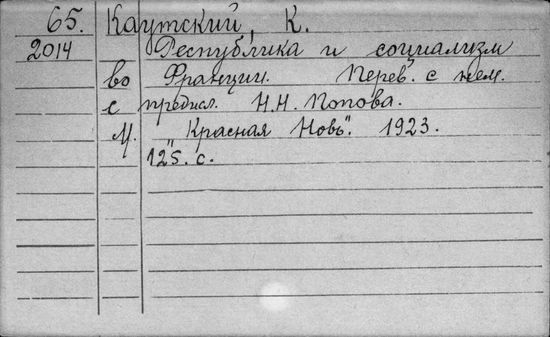 65. Каутский, К.
2014 Республика и социализм
во Франции. Перев. с нем.
с предисл. Н.Н. Попова.
М. "Красная Новь". 1923.
125. с.